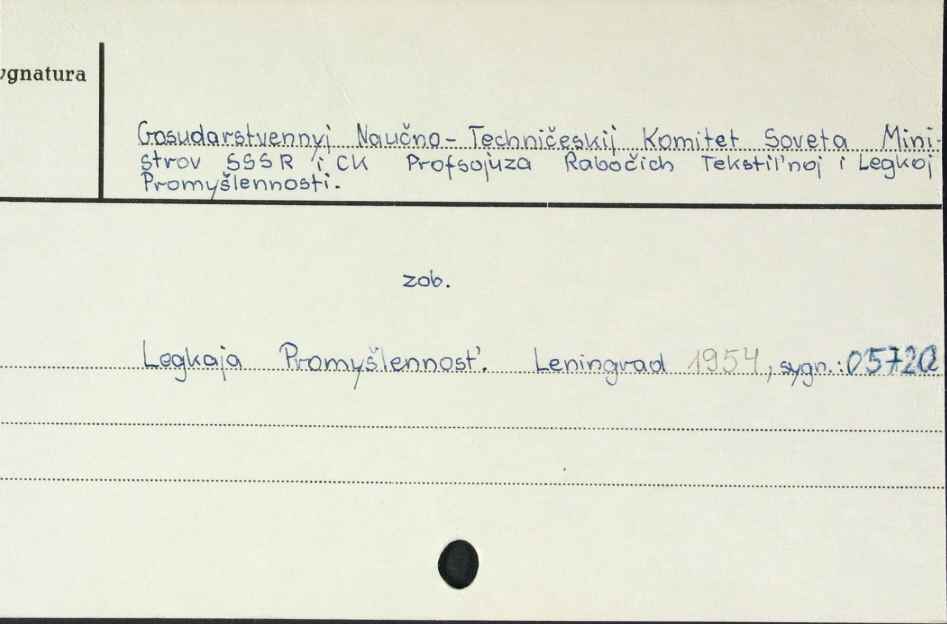 ygnatura
Gosudarstvennyj Naučno-Techničeskij Komitet Soveta Mini-
strov SSSR i CK Profsojuza Rabočich Tekstil'noj i Legkoj
Promyšlennosti.
zob.
Legkaja Promyšlennost'. Leningrad 1954, sygn.: 05720